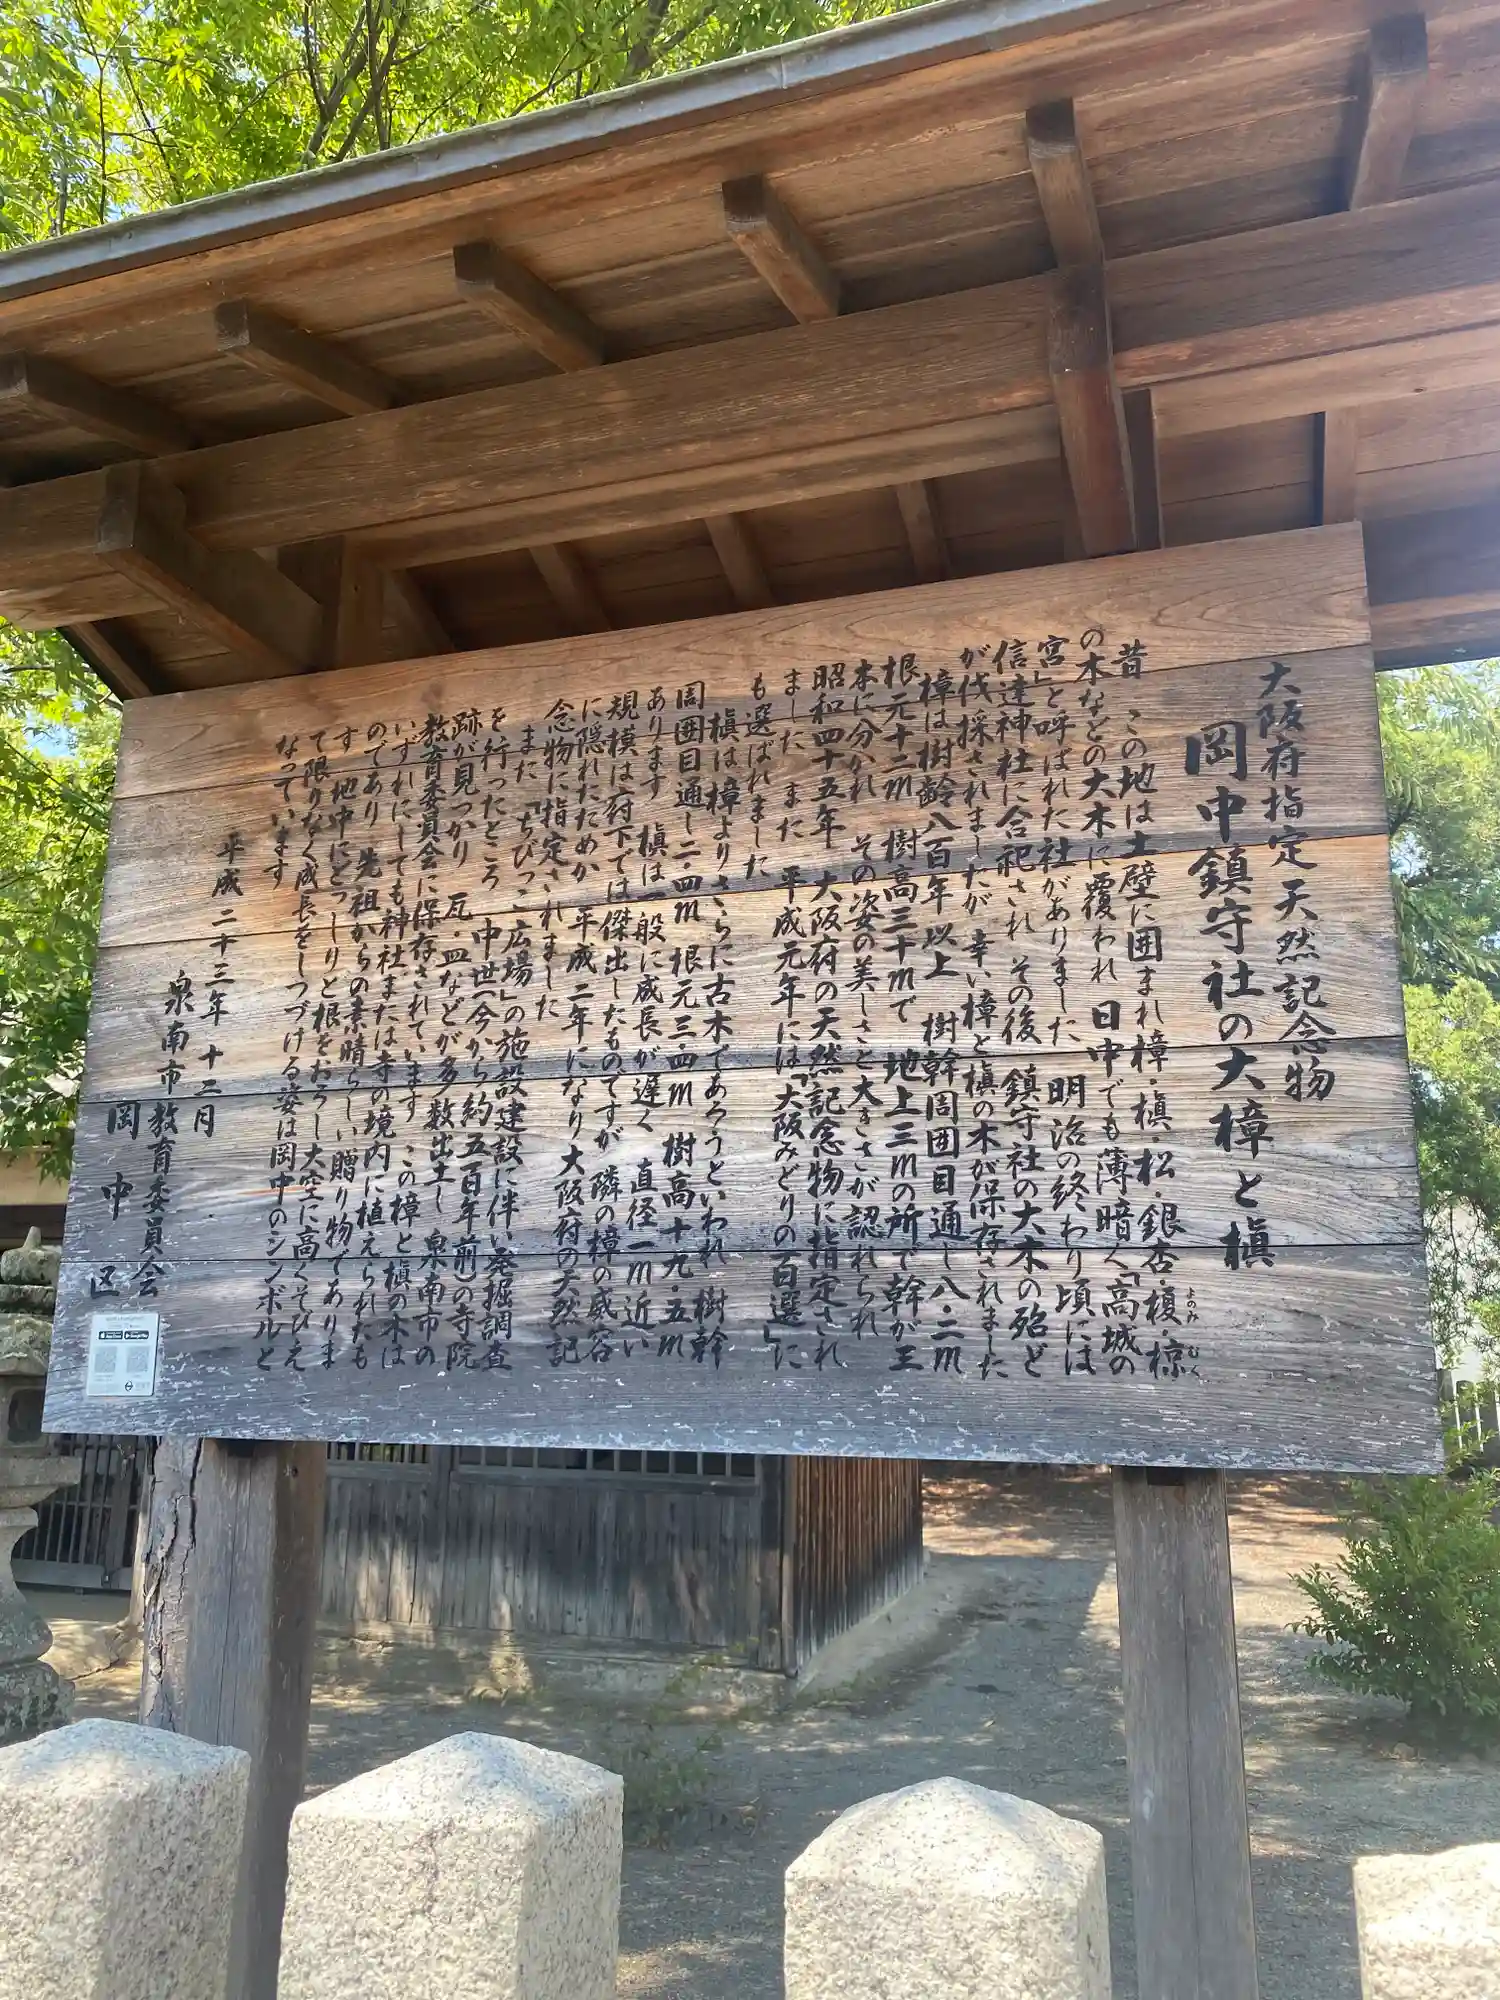 大阪府指定天然記念物
岡中鎮守社の大樟と槇
昔 この地は土壁に囲まれ樟・槇・松・銀杏・榎・椋
よのみ むく
の木などの大木に覆われ 日中でも薄暗く「高城の
宮」と呼ばれた社がありました 明治の終わり頃には
信達神社に合祀され その後 鎮守社の大木の殆ど
が伐採されましたが 幸い樟と槇の木が保存されました
樟は樹齢八百年以上 樹幹周囲目通し八・二m
根元十二m 樹高三十mで 地上三mの所で幹が三
本に分かれ その姿の美しさと大きさが認れられ
昭和四十五年 大阪府の天然記念物に指定され
ました また 平成元年には「大阪みどりの百選」に
も選ばれました
槇は樟よりさらに古木であろうといわれ 樹幹
周囲目通し二・四m 根元三・四m 樹高十九・五m
あります 槇は一般に成長が遅く 直径一m近い
規模は府下では傑出したものですが 隣の樟の威容
に隠れたためか 平成二年になり大阪府の天然記
念物に指定されました
また「ちびっこ広場」の施設建設に伴い発掘調査
を行ったところ 中世(今から約五百年前)の寺院
跡が見つかり 瓦・皿などが多数出土し 泉南市の
教育委員会に保存されています この樟と槇の木は
いずれにしても神社または寺の境内に植えられたも
のであり 先祖からの素晴らしい贈り物でありま
す 地中にどっしりと根をおろし大空に高くそびえ
て限りなく成長をしつづける姿は岡中のシンボルと
なっています
平成二十三年十二月
泉南市教育委員会
岡中区